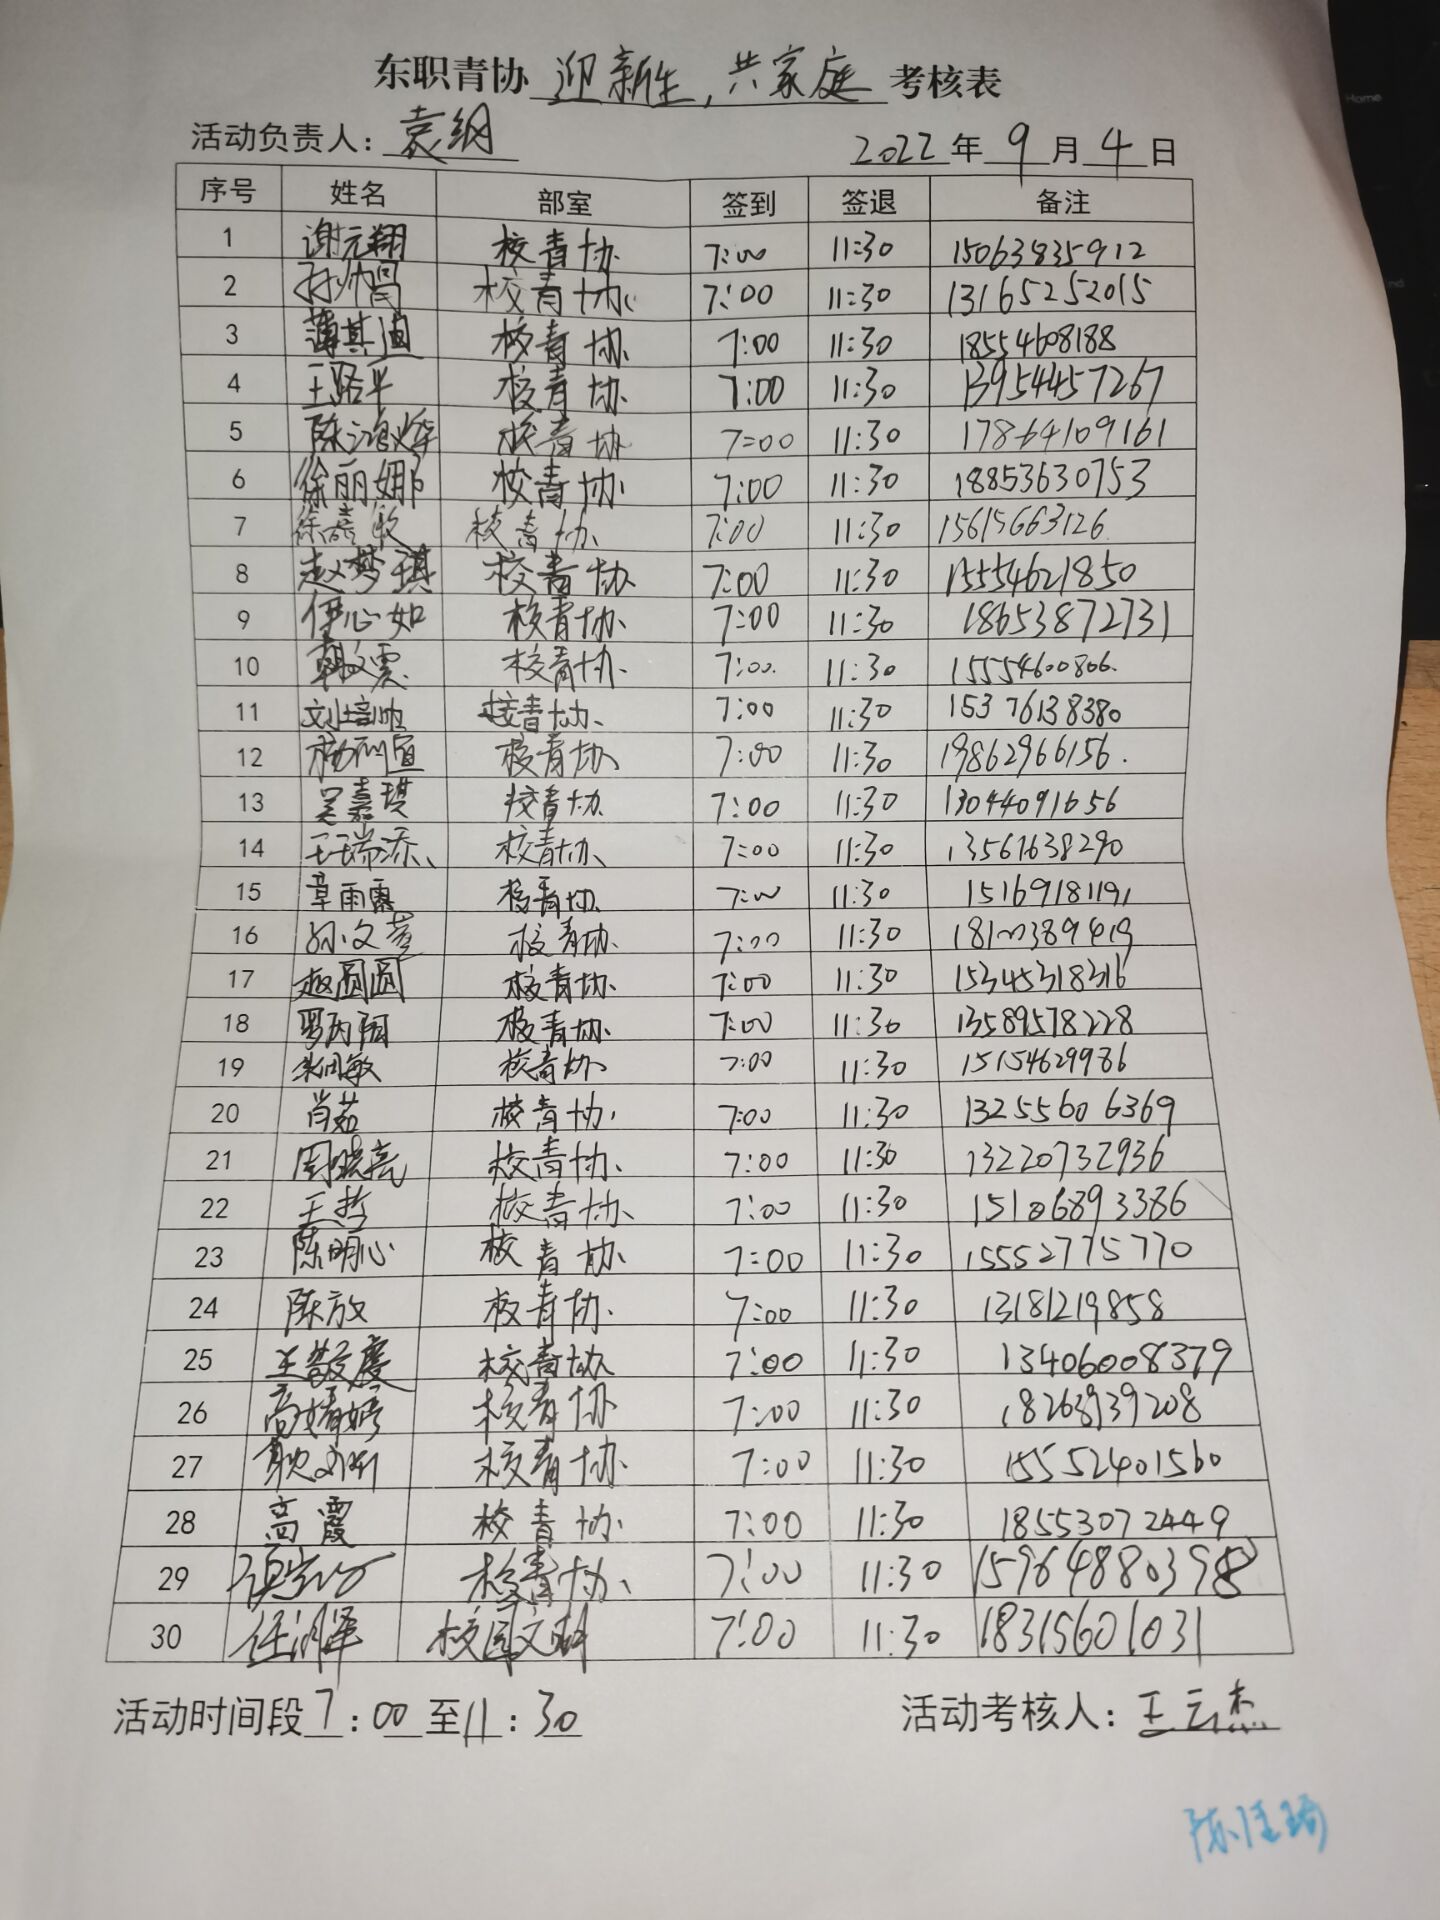 东职青协 迎新生,共家庭 考核表
活动负责人: 袁纲 2022年9月4日
序号 姓名 部室 签到 签退 备注
1 谢元翔 校青协 7:00 11:30 15063835912
2 校青协 7:00 11:30 13165252015
3 薄其迪 校青协 7:00 11:30 18554608188
4 王路平 校青协 7:00 11:30 13954457267
5 陈鸿烨 校青协 7:00 11:30 17864109161
6 徐丽娜 校青协 7:00 11:30 18853630753
7 徐彦敏 校青协 7:00 11:30 15615663126
8 赵梦琪 校青协 7:00 11:30 15554621850
9 伊心如 校青协 7:00 11:30 18653872731
10 校青协 7:00 11:30 15554600806
11 校青协 7:00 11:30 15376138380
12 校青协 7:00 11:30 19862966156
13 吴嘉琪 校青协 7:00 11:30 13044091656
14 王瑞添 校青协 7:00 11:30 13561638290
15 章雨露 校青协 7:00 11:30 15169181191
16 校青协 7:00 11:30
17 赵圆圆 校青协 7:00 11:30 15345318316
18 校青协 7:00 11:30 13589578228
19 校青协 7:00 11:30 15154629986
20 肖茹 校青协 7:00 11:30 13255606369
21 周晓亮 校青协 7:00 11:30 13220732936
22 王哲 校青协 7:00 11:30 15106893386
23 陈明心 校青协 7:00 11:30 15552775770
24 陈放 校青协 7:00 11:30 13181219858
25 王懿庆 校青协 7:00 11:30 13406008379
26 高婧婷 校青协 7:00 11:30 18263939208
27 校青协 7:00 11:30 15552401560
28 高霞 校青协 7:00 11:30 18553072449
29 校青协 7:00 11:30 15964880398
30 7:00 11:30 18315601031
活动时间段7:00至11:30 活动考核人:王云杰
陈佳琦